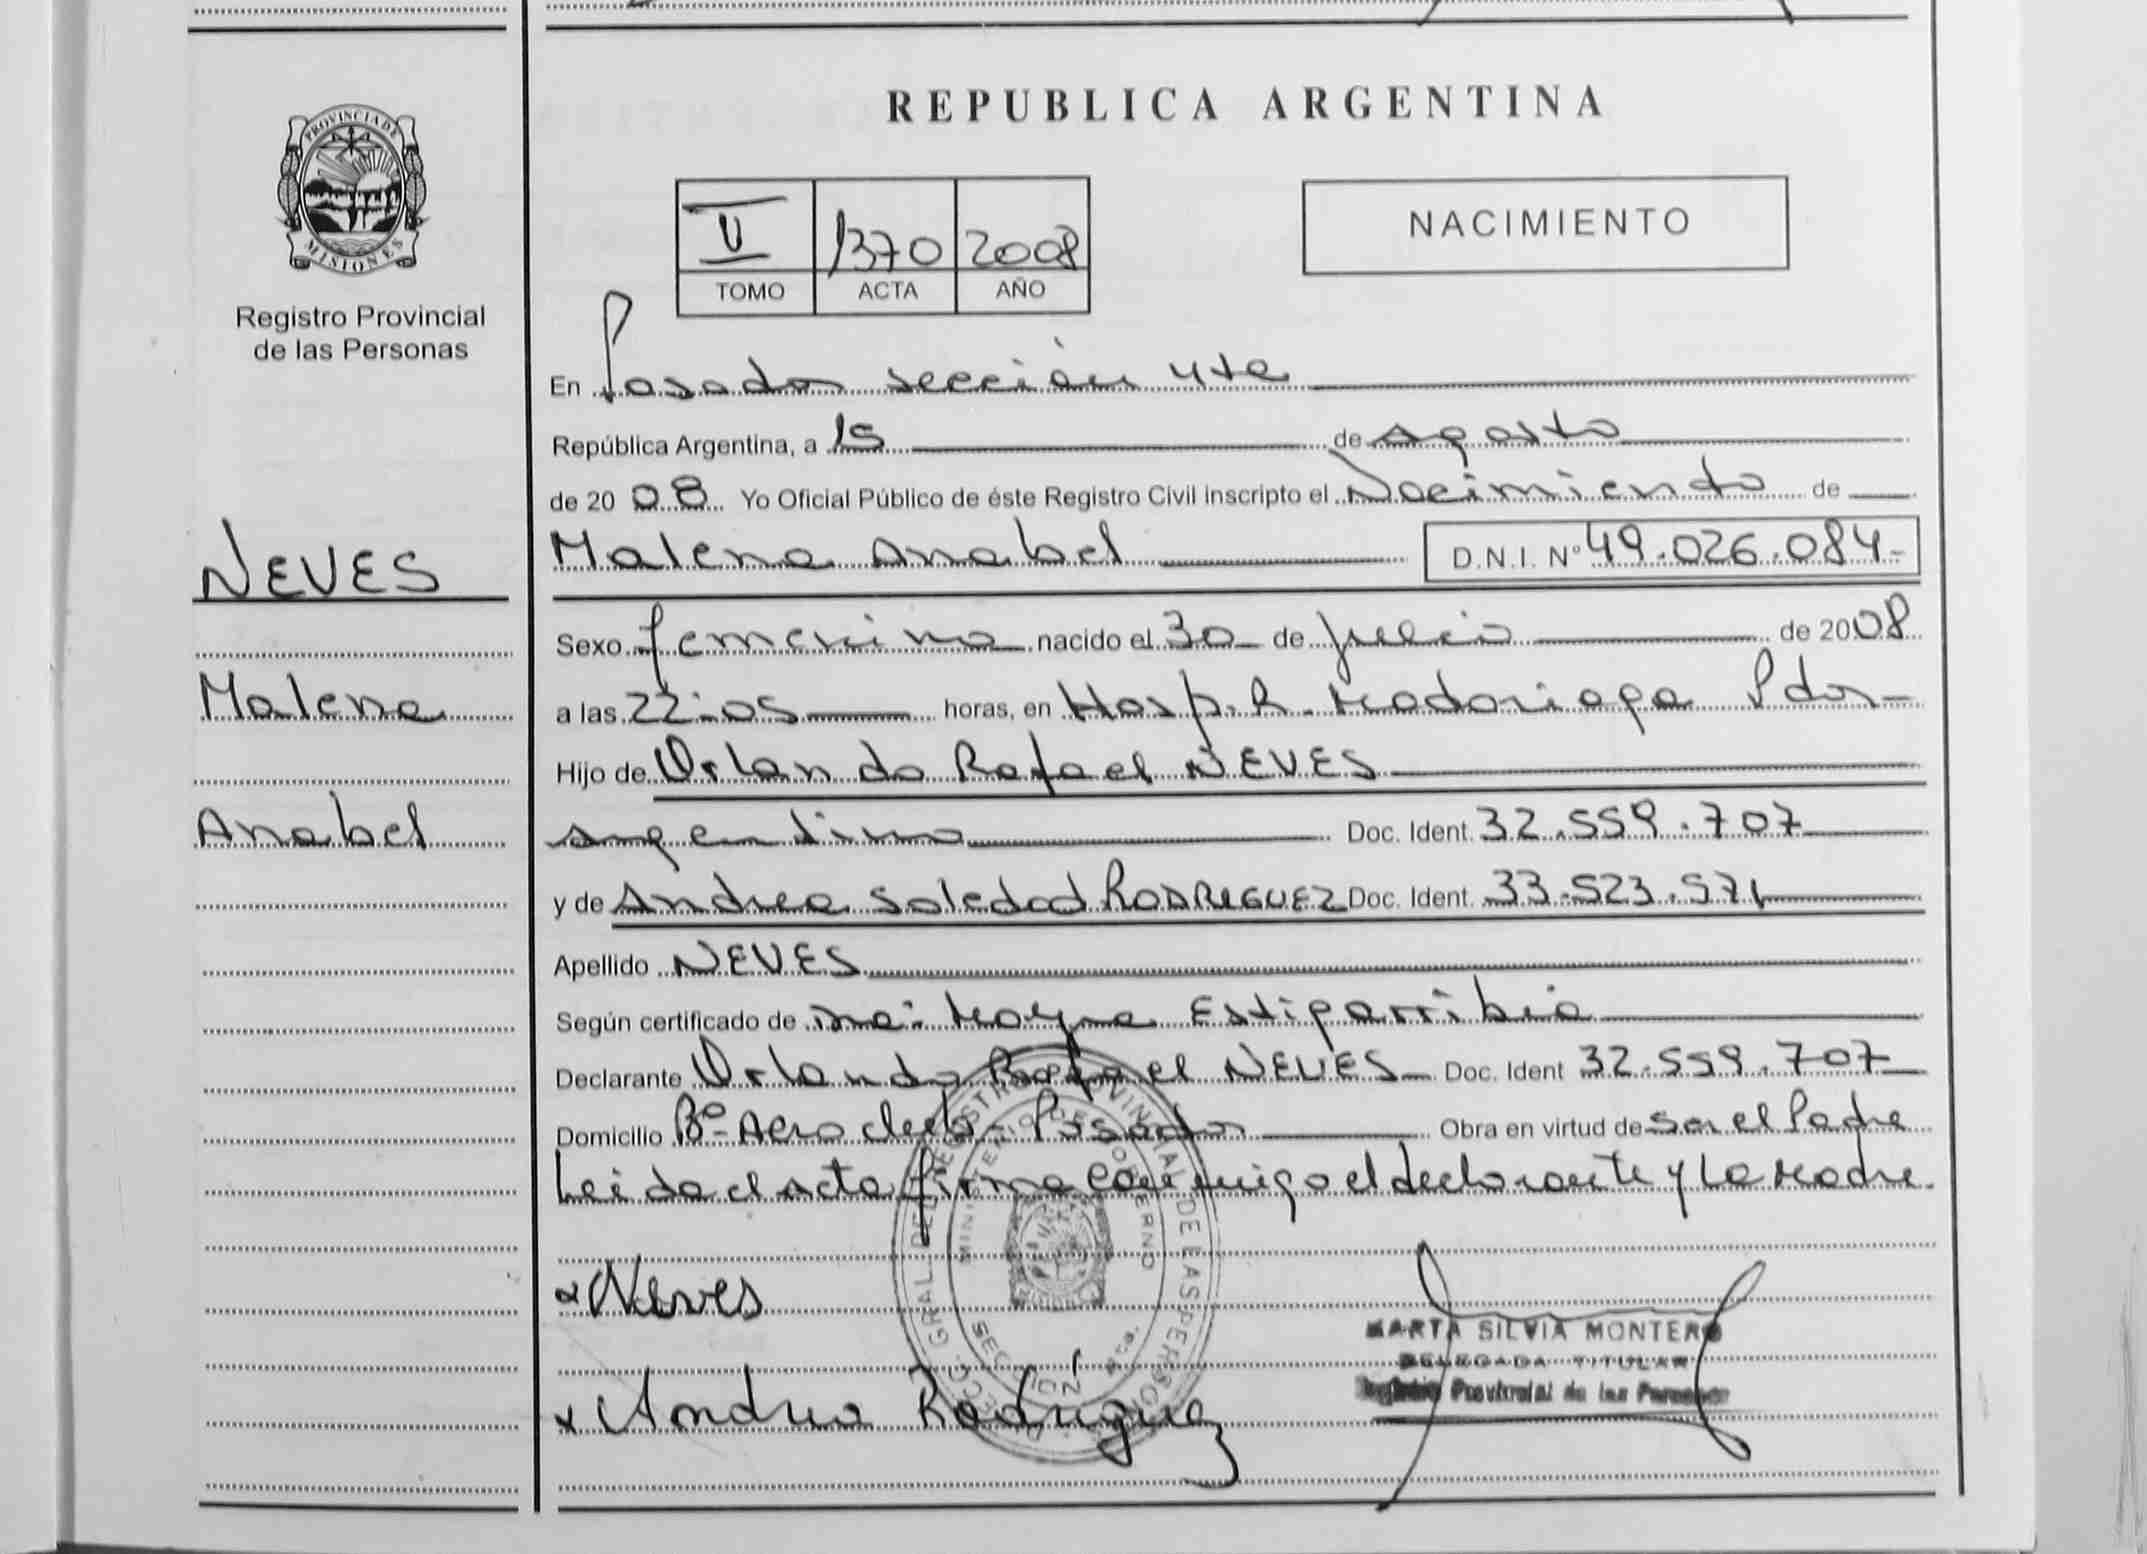 REPUBLICA ARGENTINA
PROVINCIA DE
MISIONES
Registro Provincial
de las Personas
V 1370 2008
TOMO ACTA AÑO
NACIMIENTO
En Posadas sección 4ta
República Argentina, a 15 de Agosto
de 2008 Yo Oficial Público de éste Registro Civil inscripto el Nacimiento de
NEVES
Malena
Anabel
Malena Anabel D.N.I. Nº 49.026.084-
Sexo femenino nacido el 30 de Julio de 2008
a las 22:05 horas, en Hosp. R. Madariaga Pdas-
Hijo de Orlando Rafael NEVES
argentino Doc. Ident. 32.559.707
y de Andrea Soledad RODRIGUEZ Doc. Ident. 33.523.571
Apellido NEVES
Según certificado de Mayra Estigarribia
Declarante Orlando Rafael NEVES Doc. Ident 32.559.707
Domicilio Bº Aero club- Posadas Obra en virtud de ser el Padre
Leida el acta firma conmigo el declarante y la Madre.
Neves
Andrea Rodriguez
MARTA SILVIA MONTERO
DELEGADA TITULAR
Registro Provincial de las Personas
DIRECC. GRAL. DEL REGISTRO PROVINCIAL DE LAS PERSONAS
MINISTERIO DE GOBIERNO
SECCION 4ta.